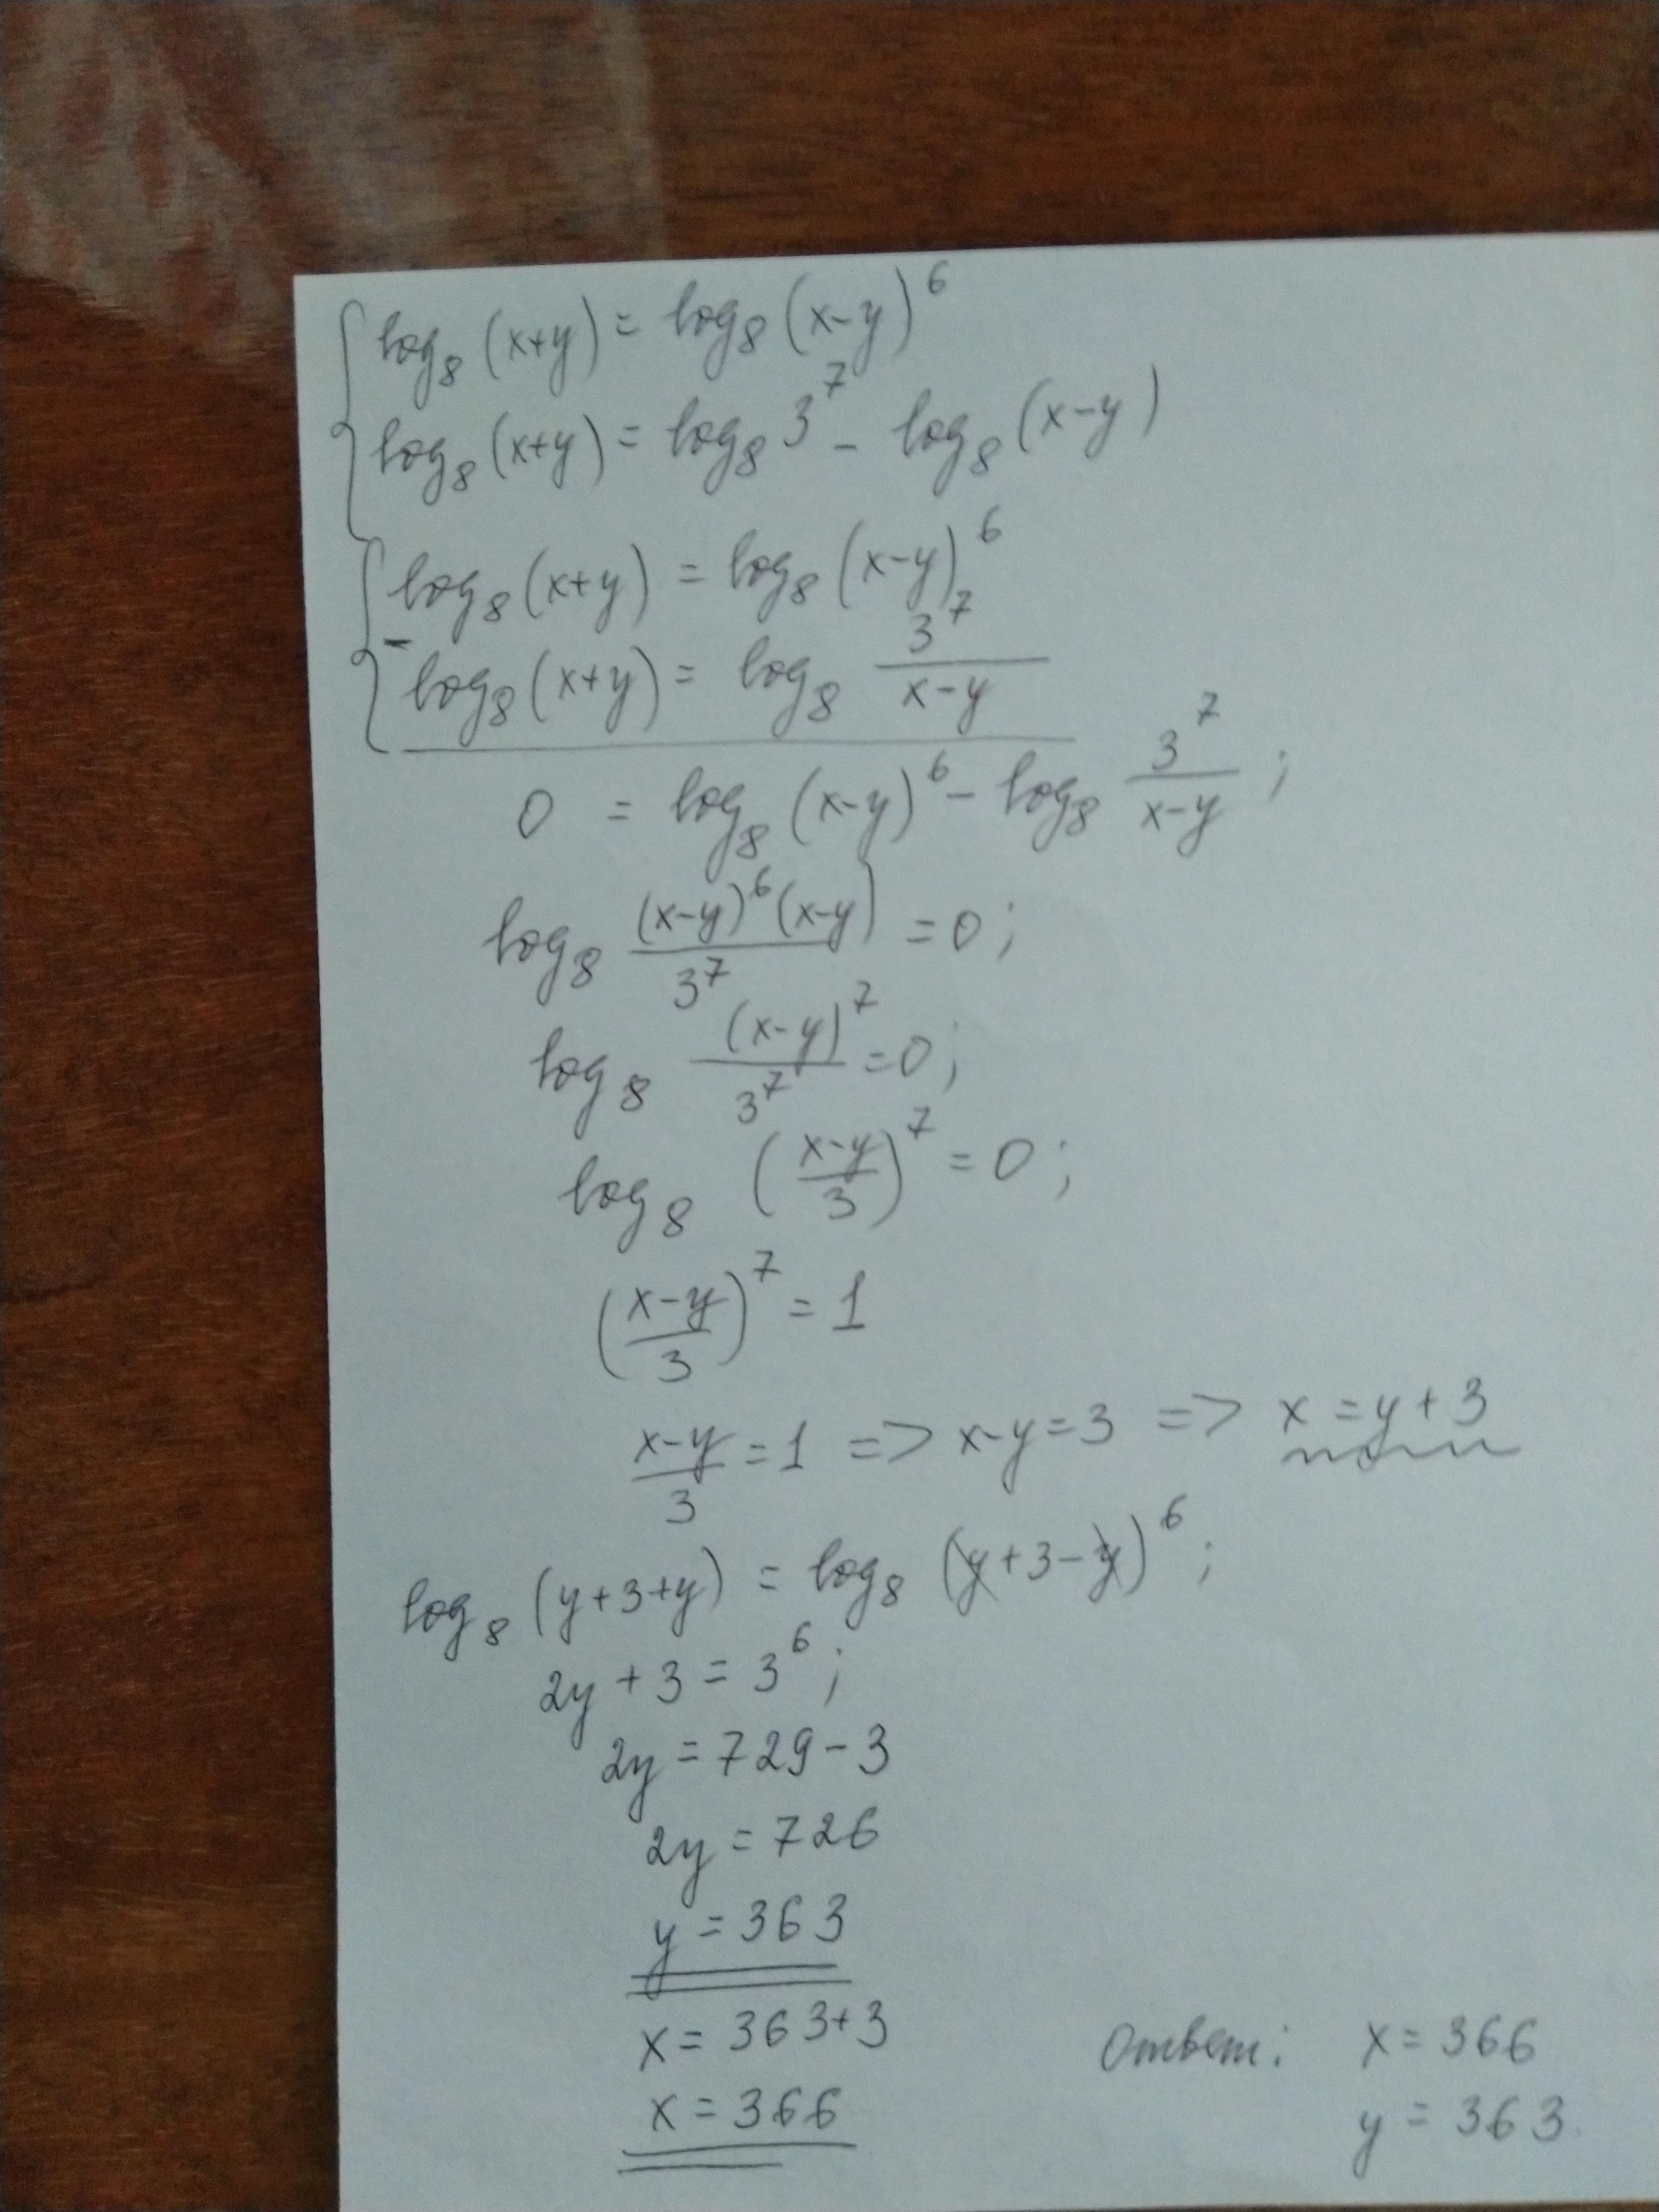 log₈(x+y) = log₈(x-y)⁶
log₈(x+y) = log₈3⁷ - log₈(x-y)
log₈(x+y) = log₈(x-y)⁶
- log₈(x+y) = log₈ 3⁷/(x-y)
0 = log₈(x-y)⁶ - log₈ 3⁷/(x-y);
log₈ (x-y)⁶(x-y)/3⁷ = 0;
log₈ (x-y)⁷/3⁷ = 0;
log₈ ((x-y)/3)⁷ = 0;
((x-y)/3)⁷ = 1
(x-y)/3 = 1 => x-y=3 => x=y+3
log₈(y+3+y) = log₈(y+3-y)⁶;
2y+3=3⁶;
2y=729-3
2y=726
y=363
x=363+3
x=366
Ответ: x=366
y=363